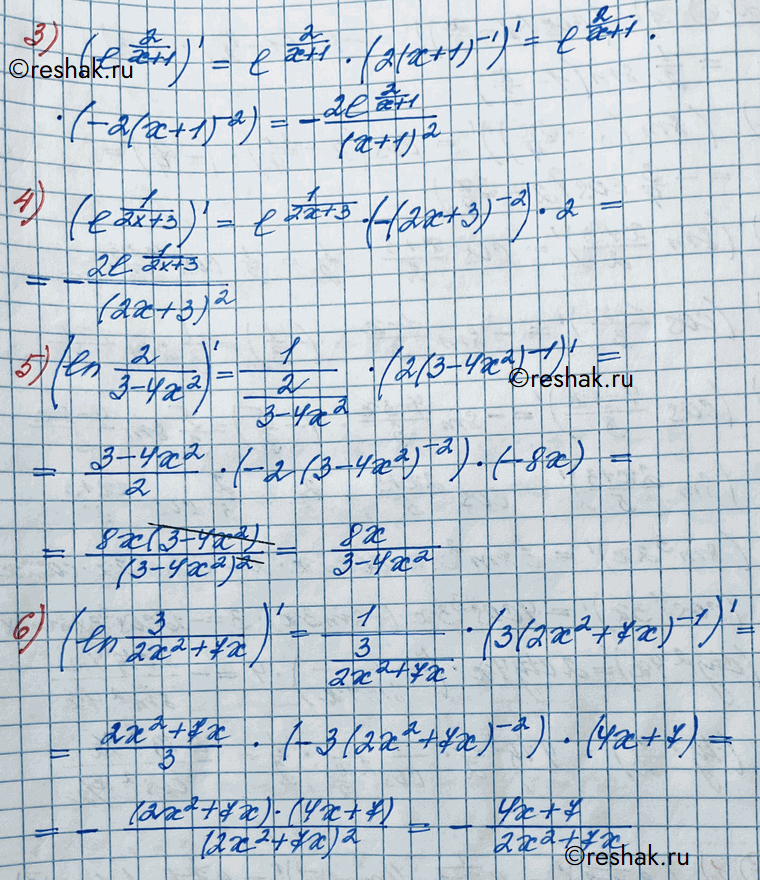 3) (e^(2/(x+1)))' = e^(2/(x+1)) · (2(x+1)^-1)' = e^(2/(x+1)) ·
©reshak.ru
· (-2(x+1)^-2) = - 2e^(2/(x+1)) / (x+1)^2
4) (e^(1/(2x+3)))' = e^(1/(2x+3)) · (-(2x+3)^-2) · 2 =
= - 2e^(1/(2x+3)) / (2x+3)^2
5) (ln 2/(3-4x^2))' = 1/(2/(3-4x^2)) · (2(3-4x^2)^-1)' =
©reshak.ru
= (3-4x^2)/2 · (-2(3-4x^2)^-2) · (-8x) =
= 8x(3-4x^2)/(3-4x^2)^2 = 8x/(3-4x^2)
6) (ln 3/(2x^2+7x))' = 1/(3/(2x^2+7x)) · (3(2x^2+7x)^-1)' =
= (2x^2+7x)/3 · (-3(2x^2+7x)^-2) · (4x+7) =
= - (2x^2+7x)·(4x+7)/(2x^2+7x)^2 = - (4x+7)/(2x^2+7x)
©reshak.ru